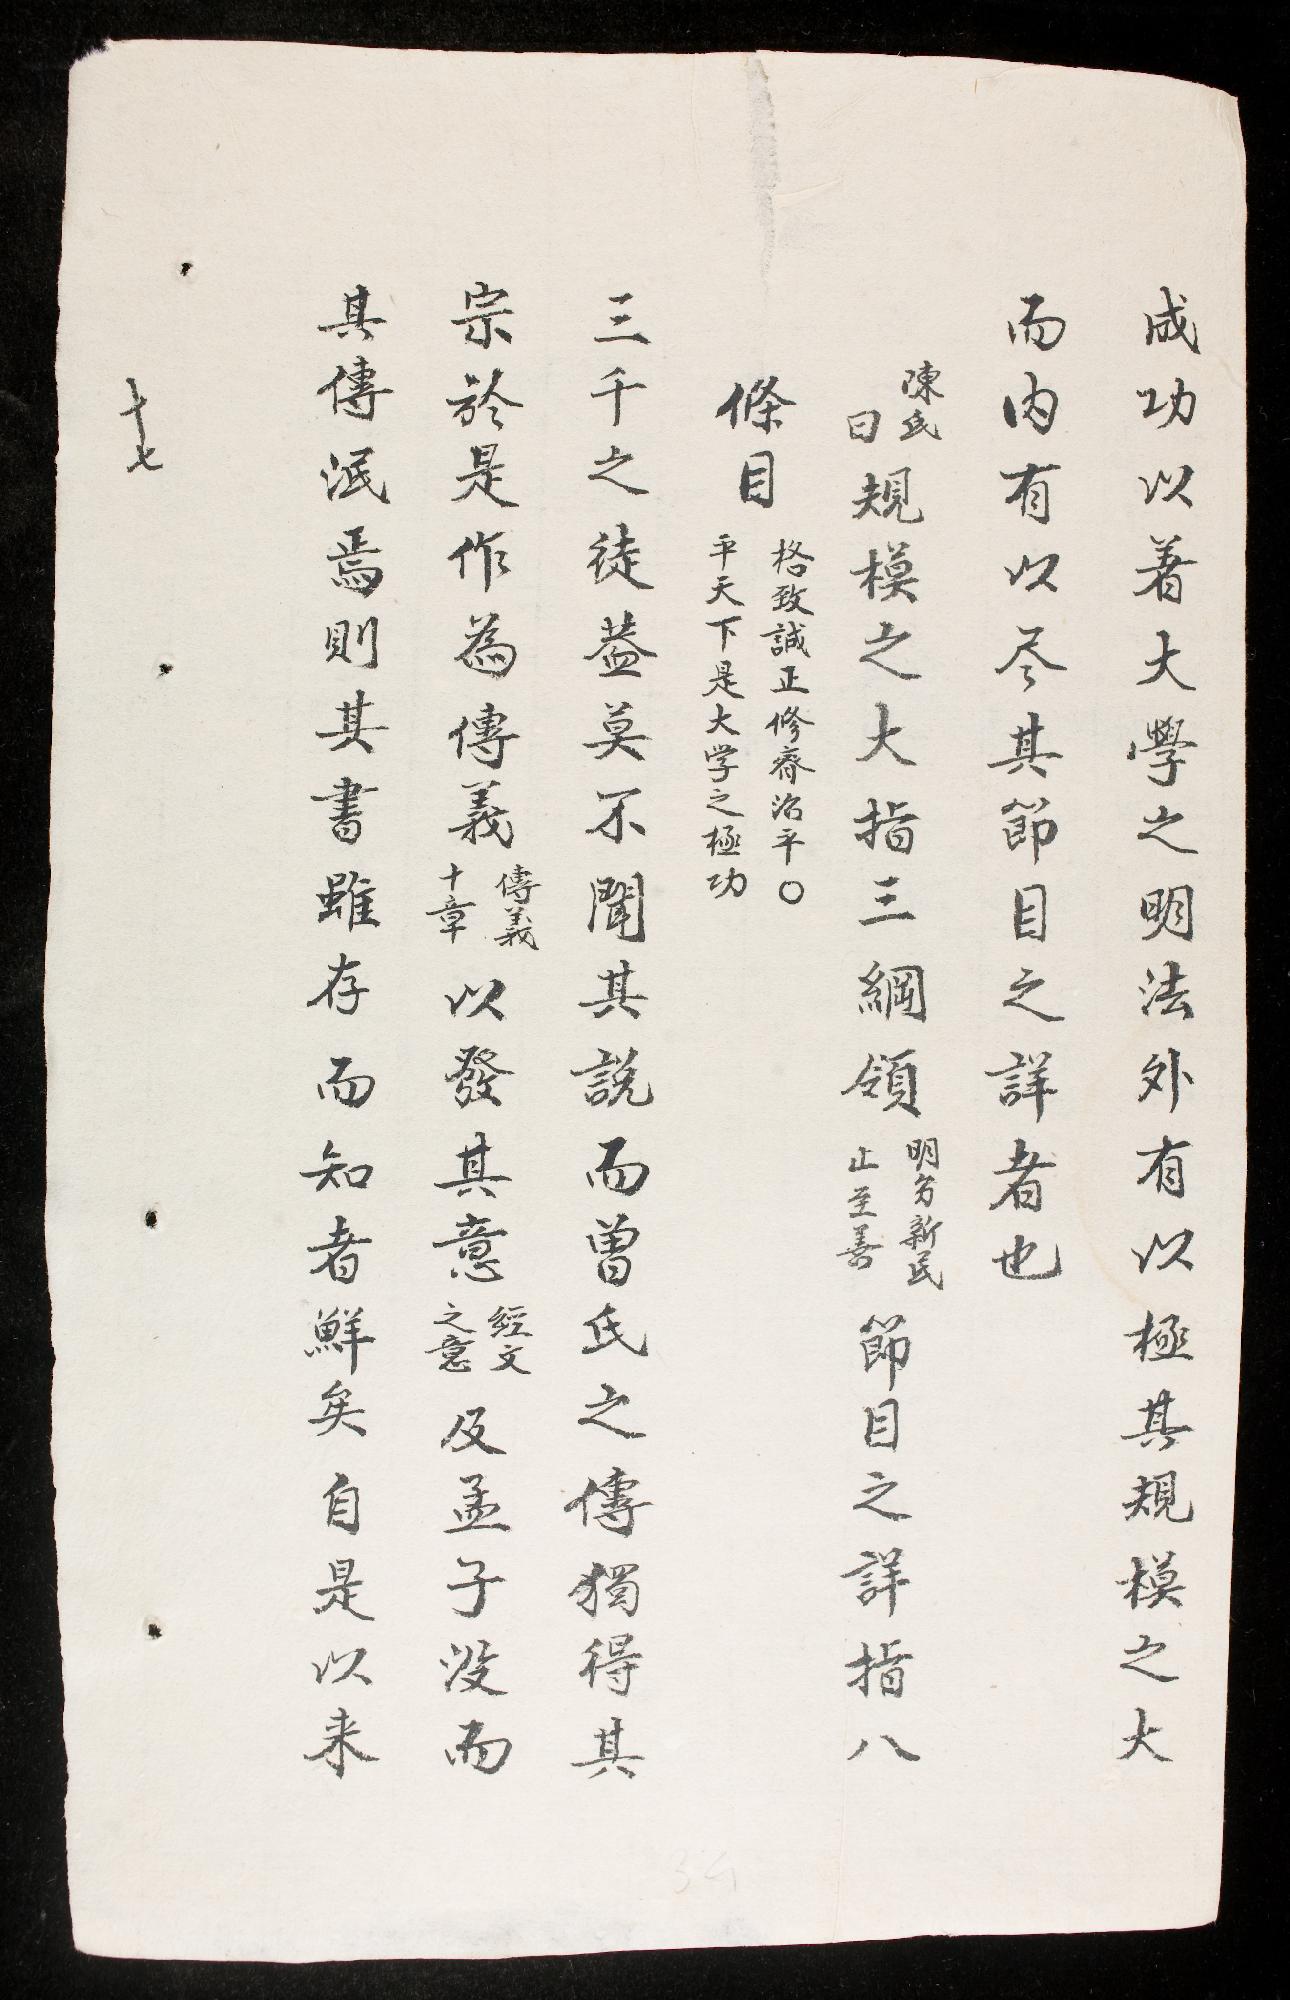 成功以著大學之明法外有以極其規模之大
而内有以尽其節目之詳者也
陳氏
曰
規模之大指三綱領
明 新民
止至善
節目之詳指八
條目
格致誠正修齊治平〇
平天下是大学之極功
三千之徒葢莫不聞其說而曽氏之傳獨得其
宗於是作為傳義
傳義
十章
以發其意
經文
之意
及孟子没而
其傳泯焉則其書雖存而知者鮮矣自是以来
十七